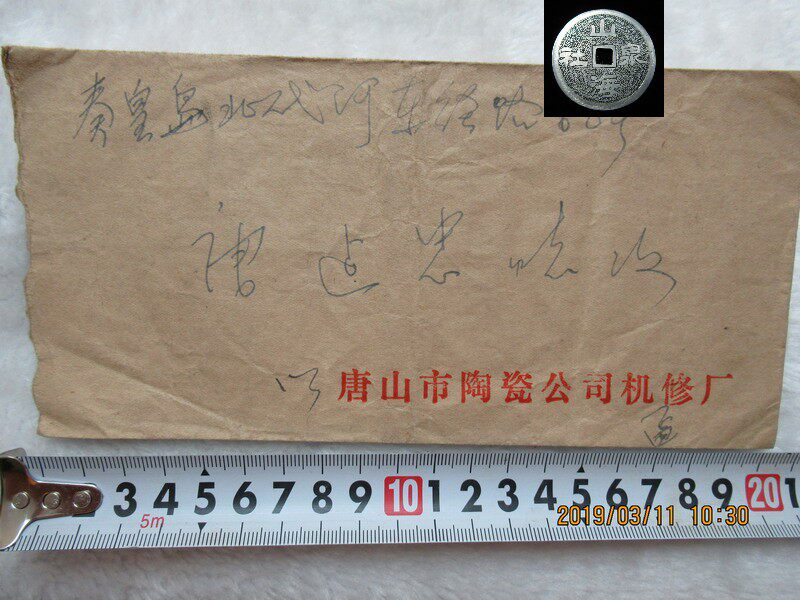 山
泉
海
秦皇岛北代河东经路
唐山市陶瓷公司机修厂
3 4 5 6 7 8 9 10 1 2 3 4 5 6 7 8 9 20 1
5m
2019/03/11 10:30